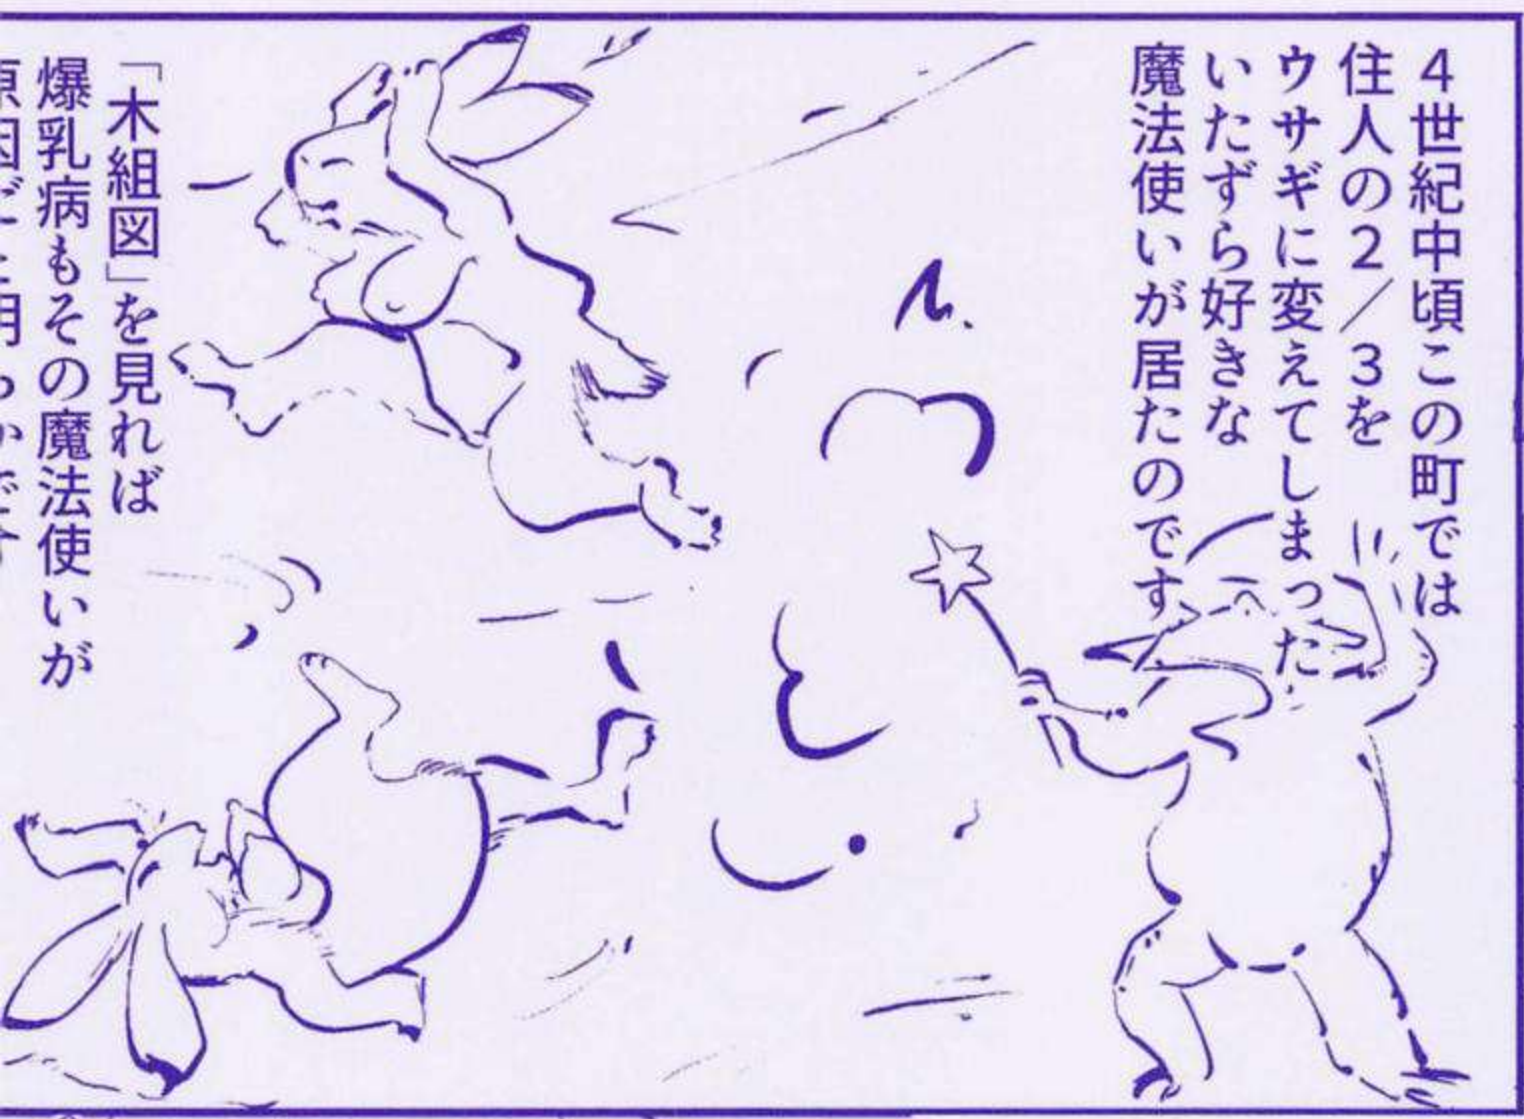 ４世紀中頃この町では
住人の２／３を
ウサギに変えてしまった
いたずら好きな
魔法使いが居たのです
「木組図」を見れば
爆乳病もその魔法使いが